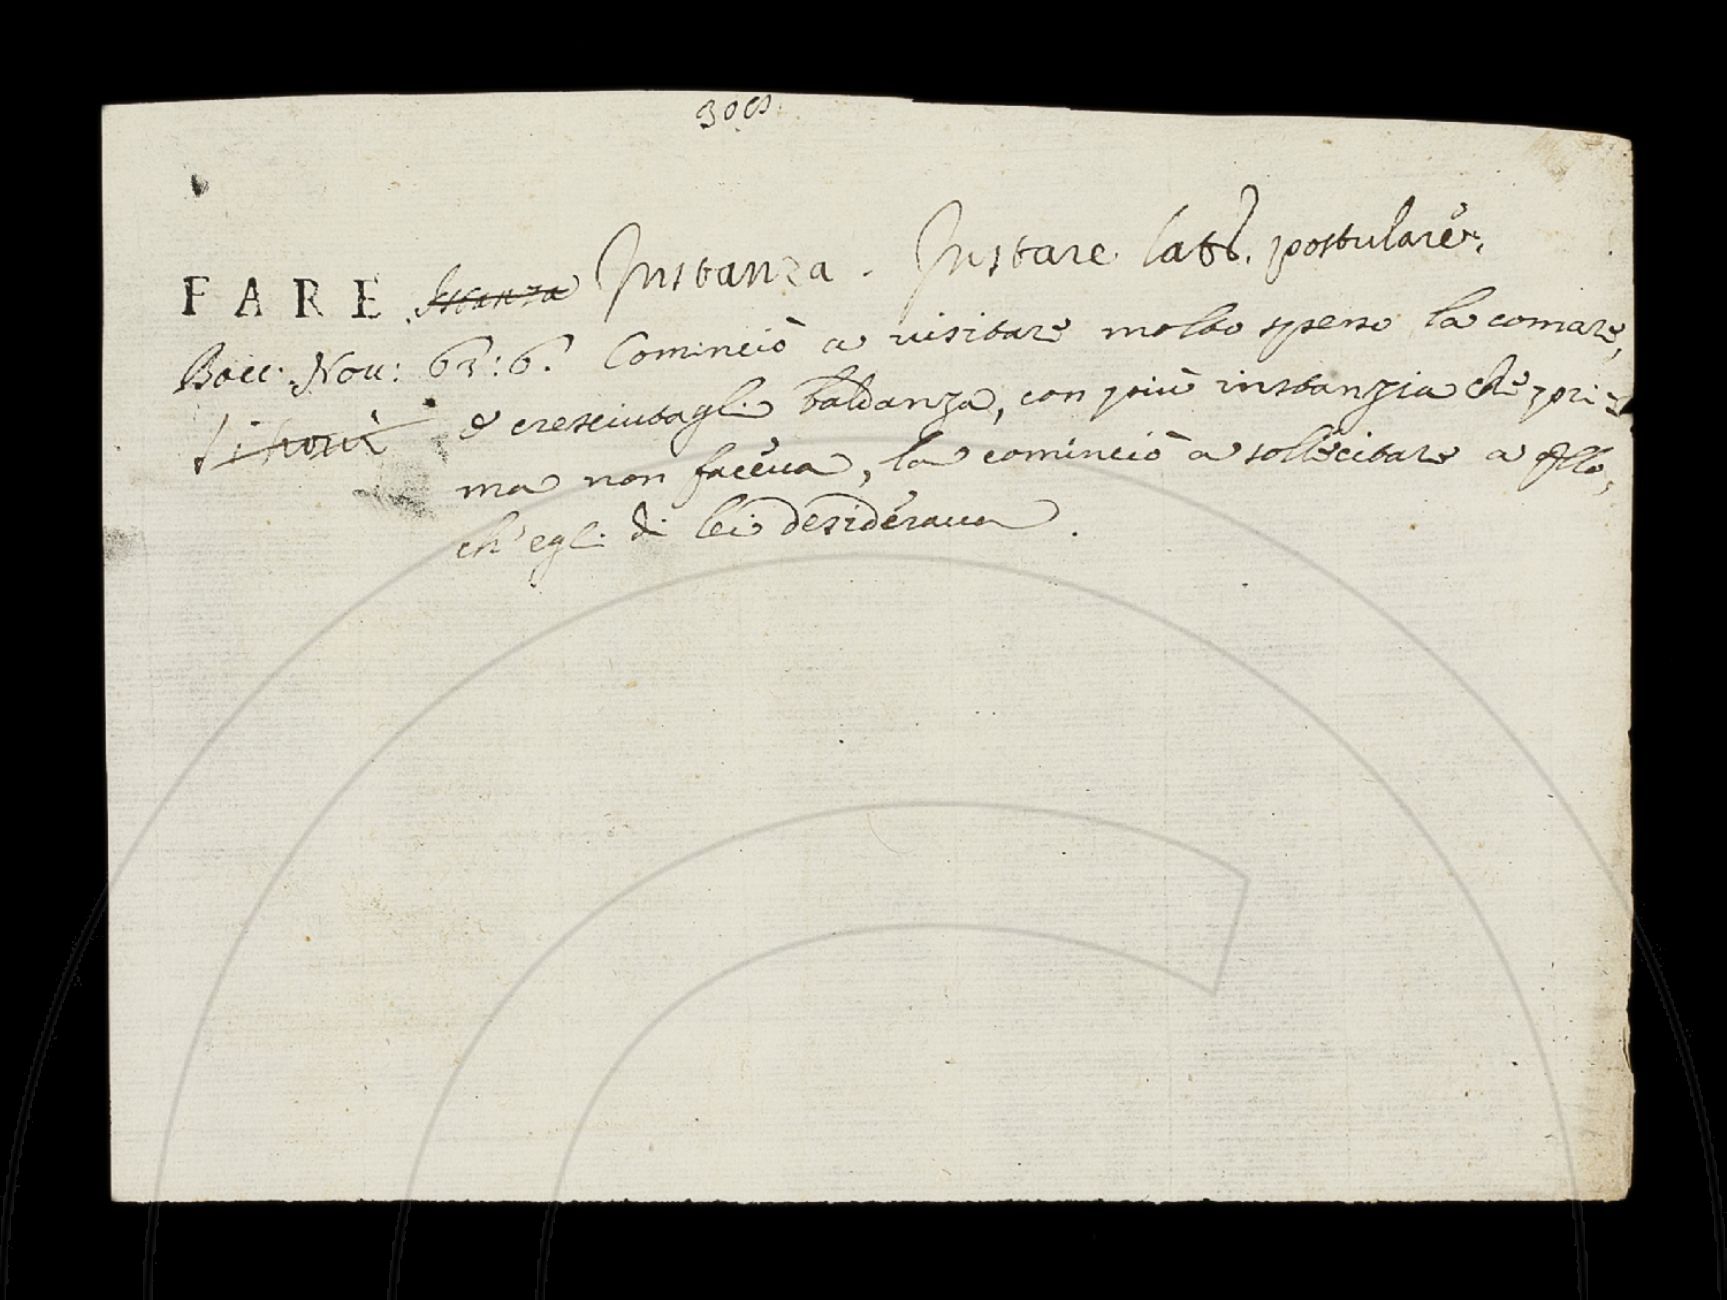 FARE Istanza Instanza. Instare latt. postulare.
Bocc. Nou: 63:6. Cominciò a uisitare molto spesso la comare,
e cresciutagli baldanza, con più instanzia che pri=
si trouà
ma non faceua, la cominciò a sollecitare a qllo,
ch'egli di lei desideraua.